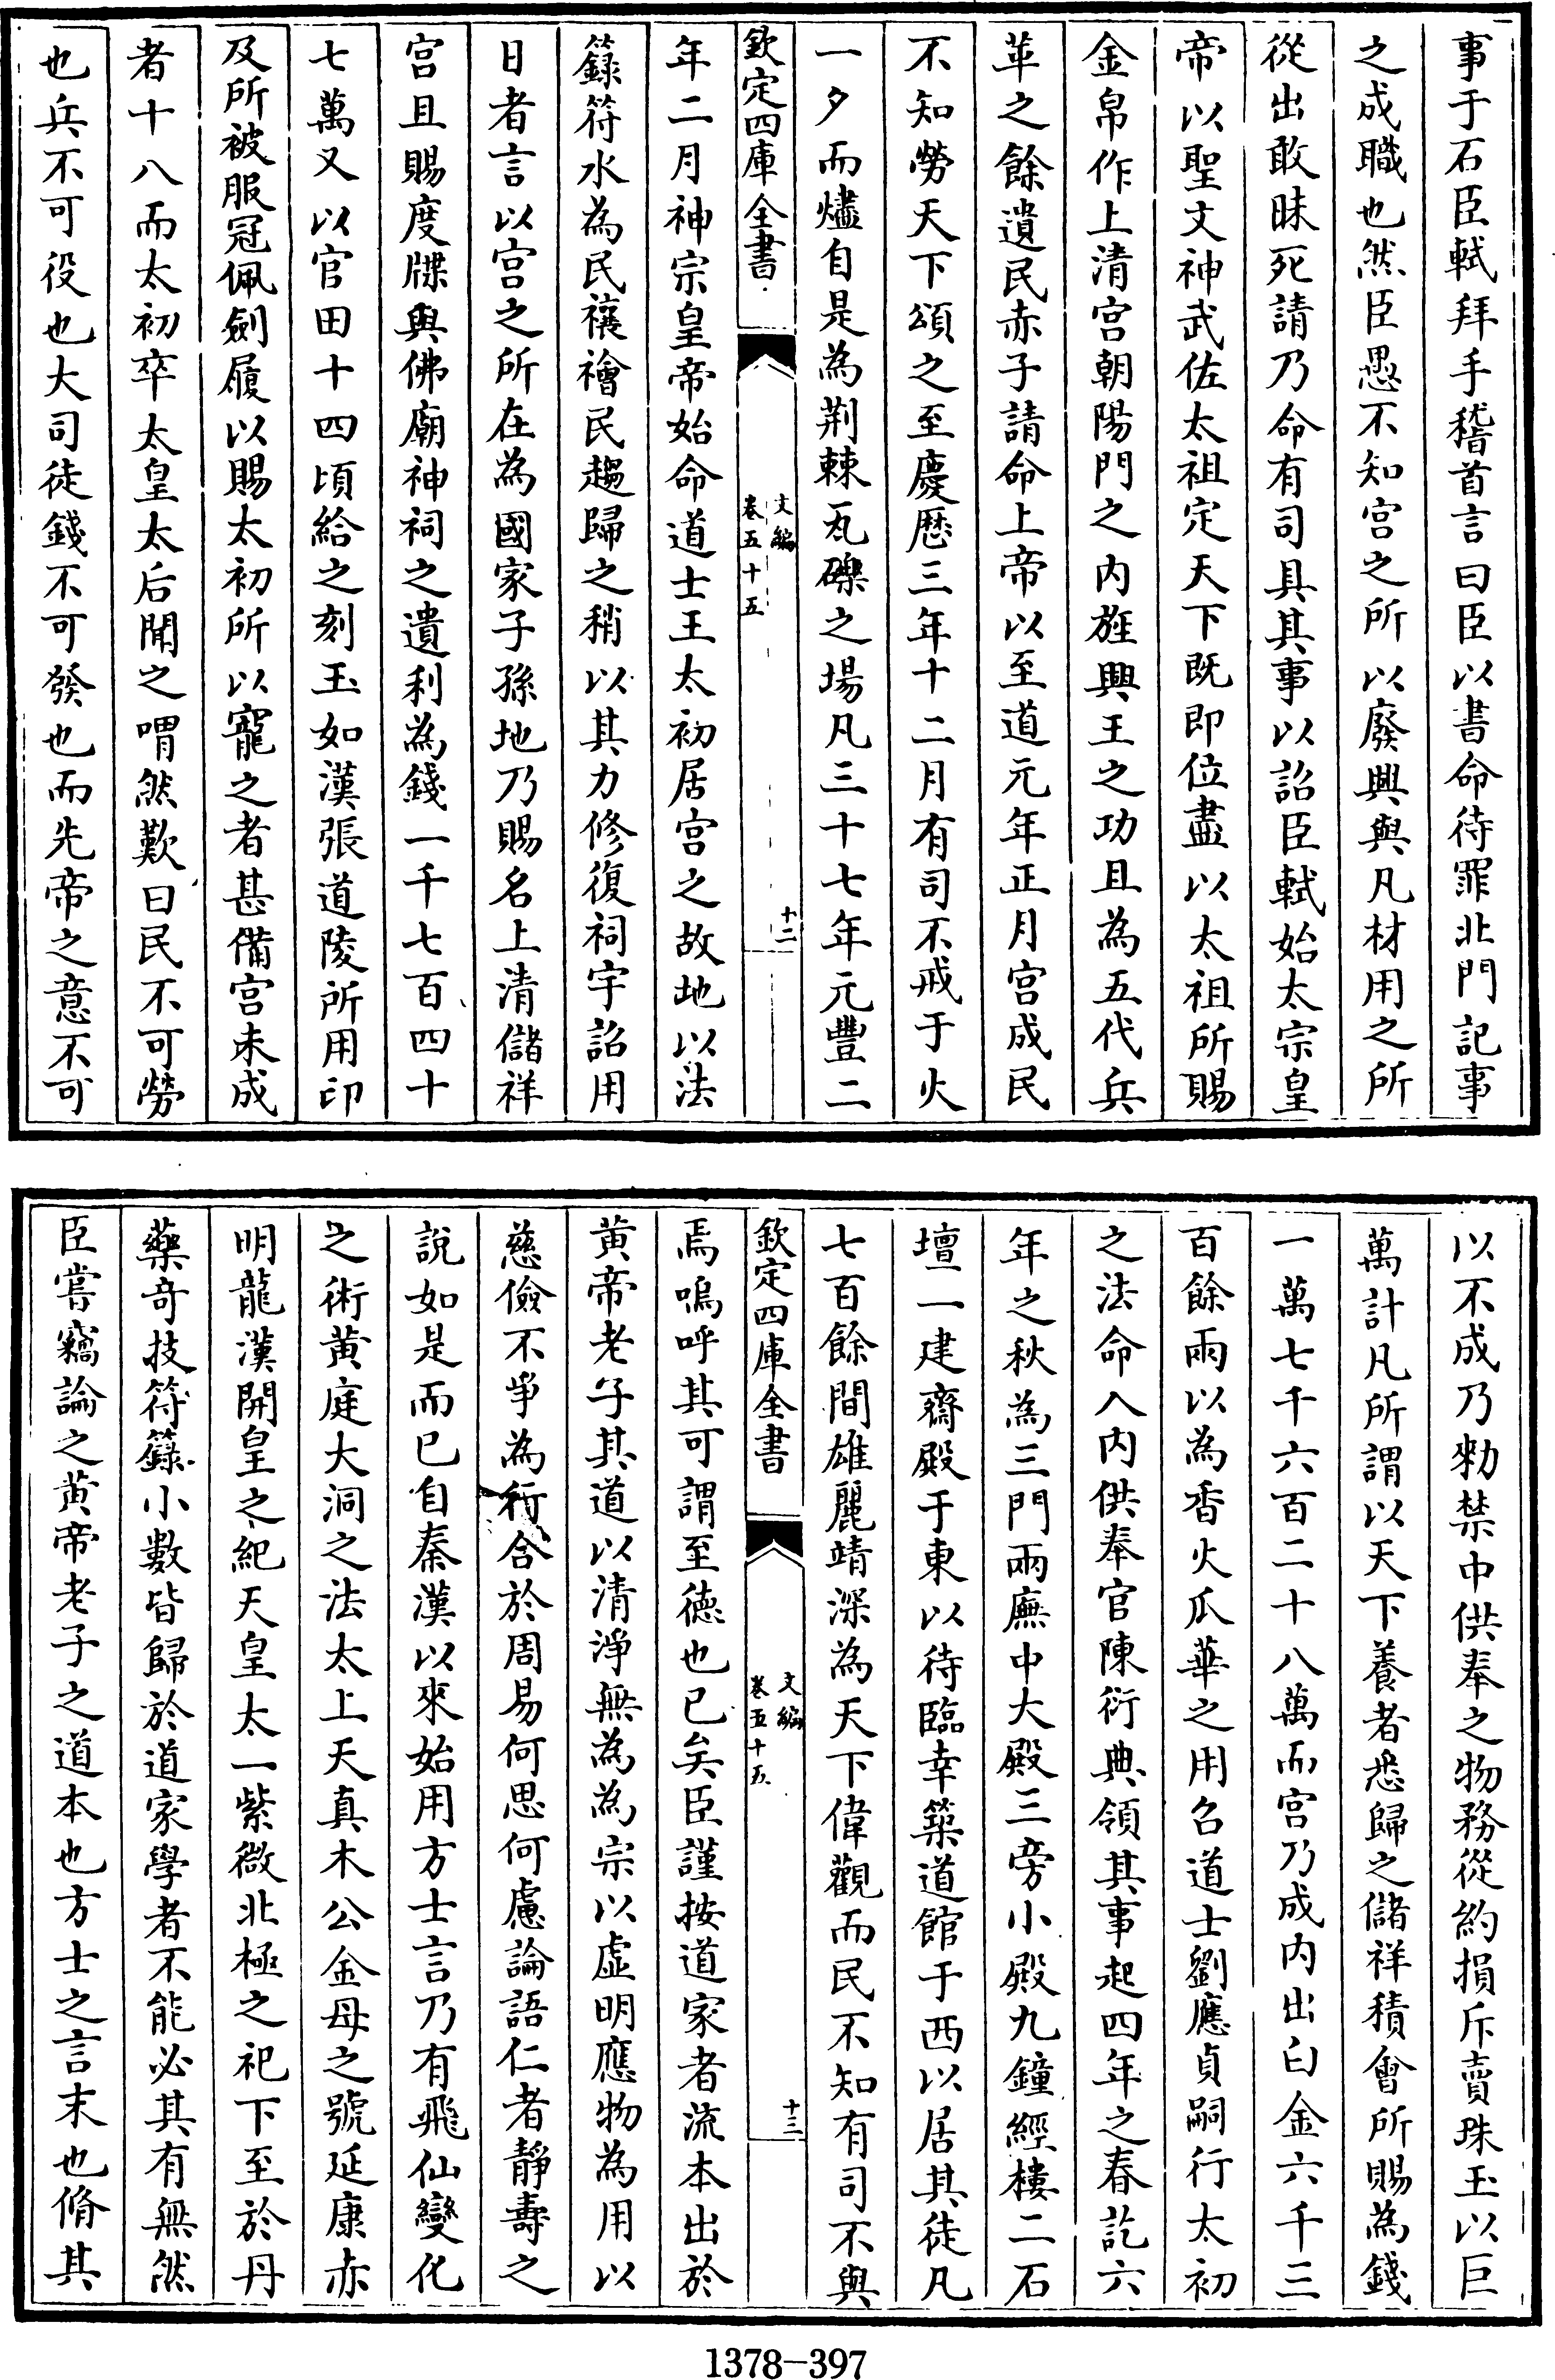 事于石臣軾拜手稽首言曰臣以書命待罪北門記事
之成職也然臣愚不知宫之所以廢興與凡材用之所
從出敢昧死請乃命有司具其事以詔臣軾始太宗皇
帝以聖文神武佐太祖定天下既即位盡以太祖所賜
金帛作上清宫朝陽門之内旌興王之功且為五代兵
革之餘遺民赤子請命上帝以至道元年正月宫成民
不知勞天下頌之至慶厯三年十二月有司不戒于火
一夕而燼自是為荆棘瓦礫之場凡三十七年元豐二
欽定四庫全書
文編
卷五十五
十二
年二月神宗皇帝始命道士王太初居宫之故地以法
籙符水為民禳禬民趨歸之稍以其力修復祠宇詔用
日者言以宫之所在為國家子孫地乃賜名上清儲祥
宫且賜度牒與佛廟神祠之遺利為錢一千七百四十
七萬又以官田十四頃給之刻玉如漢張道陵所用印
及所被服冠佩劍履以賜太初所以寵之者甚備宫未成
者十八而太初卒太皇太后聞之喟然歎曰民不可勞
也兵不可役也大司徒錢不可發也而先帝之意不可
以不成乃勑禁中供奉之物務從約損斥賣珠玉以巨
萬計凡所謂以天下養者悉歸之儲祥積會所賜為錢
一萬七千六百二十八萬而宫乃成内出白金六千三
百餘兩以為香火瓜華之用召道士劉應貞嗣行太初
之法命入内供奉官陳衍典領其事起四年之春訖六
年之秋為三門兩廡中大殿三旁小殿九鐘經樓二石
壇一建齋殿于東以待臨幸築道館于西以居其徒凡
七百餘間雄麗靖深為天下偉觀而民不知有司不與
欽定四庫全書
文編
卷五十五
十三
焉嗚呼其可謂至德也已矣臣謹按道家者流本出於
黄帝老子其道以清淨無為為宗以虚明應物為用以
慈儉不爭為行合於周易何思何慮論語仁者靜壽之
說如是而已自秦漢以來始用方士言乃有飛仙變化
之術黄庭大洞之法太上天真木公金母之號延康赤
明龍漢開皇之紀天皇太一紫微北極之祀下至於丹
藥奇技符籙小數皆歸於道家學者不能必其有無然
臣嘗竊論之黄帝老子之道本也方士之言末也脩其
1378-397